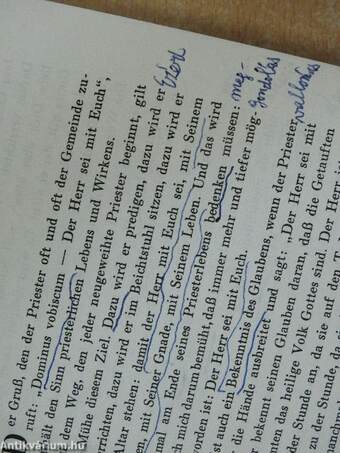 er Gruß, den der Priester oft und oft der Gemeinde zu-
ruft: „Dominus vobiscum — Der Herr sei mit Euch“,
ält den Sinn priesterlichen Lebens und Wirkens.
em Weg, den jeder neugeweihte Priester beginnt, gilt
ühe diesem Ziel. Dazu wird er predigen, dazu wird er Ezért
rrichten, dazu wird er im Beichtstuhl sitzen, dazu wird er
Altar stehen: damit der Herr mit Euch sei, mit Seinem
en mit Seiner Gnade, mit Seinem Leben. Und das wird
mal am Ende seines Priesterlebens bedenken müssen: meg-
gondolás
ch mich darum bemüht, daß immer mehr und tiefer mög-
rden ist: Der Herr sei mit Euch.
ist auch ein Bekenntnis des Glaubens, wenn der Priester vallomás
r die Hände ausbreitet und sagt: „Der Herr sei mit
er bekennt seinen Glauben daran, daß die Getauften
nten das heilige Volk Gottes sind. Der Herr
r Stunde an, da sie auf den
zu der Stunde, da
antikvarium.hu